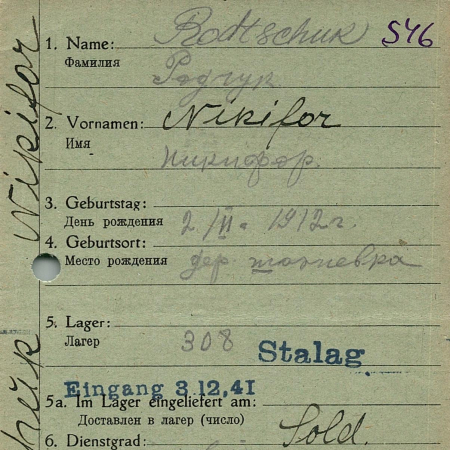 S46
1. Name: Radtschuk
Фамилия
Радчук
2. Vornamen: Nikifor
Имя
Никифор.
3. Geburtstag:
День рождения 2/II. 1912 г.
4. Geburtsort:
Место рождения дер.
5. Lager:
Лагер 308 Stalag
Eingang 3.12.41
5a. Im Lager eingeliefert am:
Доставлен в лагер (число)
6. Dienstgrad: Sold.
Nikifor